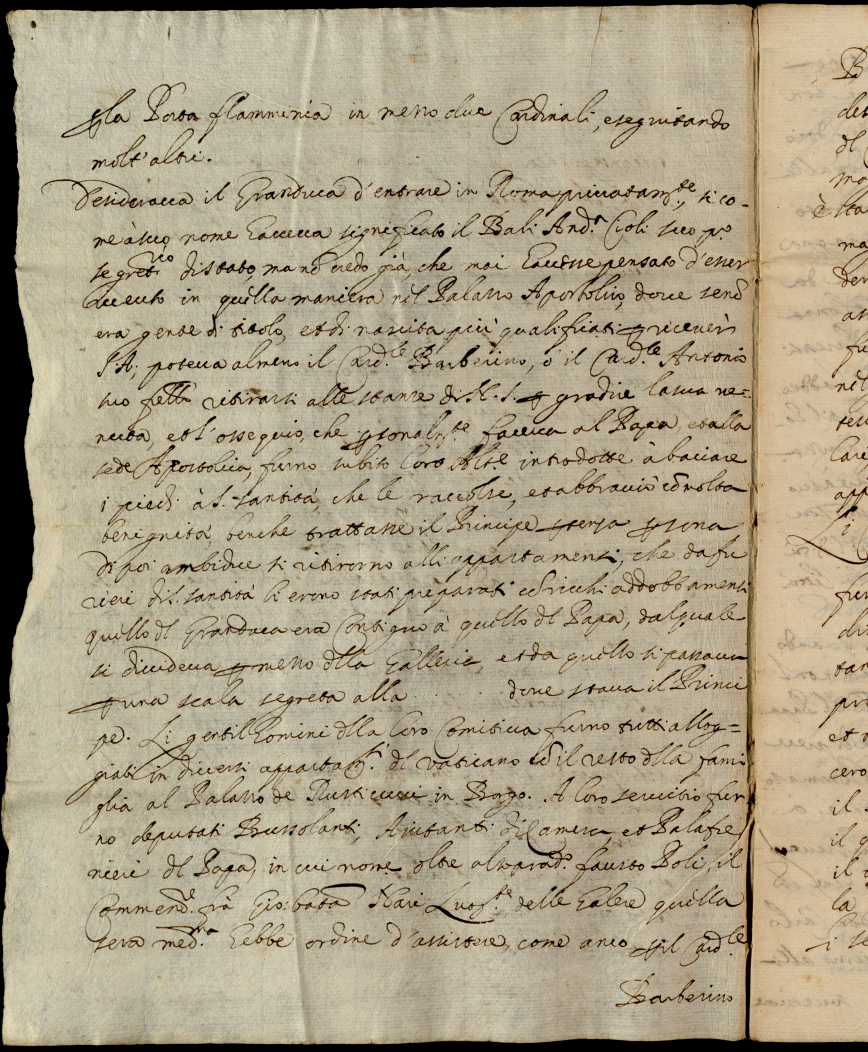 p la Porta flamminia in mezzo due Cardinali, e seguitando
molt'altri.
Desiderava il Granduca d'entrare in Roma privatam.te, si co-
me à suo nome haveva significato il Bali And.a Cioli suo p.o
segret.rio di stato, ma nõ credo già, che mai havesse pensato d'esser
ricevuto in quella maniera nel Palazzo Apostolico, dove se nõ
era gente di titolo, et di nascita più qualificati p ricever
S.A., poteva almeno il Card.le Barberino, ò il Card.le Antonio
suo fell'o ritirarsi alle stanze di N.S. p gradire la sua ve=
nuta, et l'ossequio, che psonalm.te faceva al Papa, et alla
sede Apostolica, furno subito loro Alt.e introdotte à baciare
i piedi à S. Santità, che le raccolse, et abbracciò cõ molta
benignità, benche trattasse il Principe p terza psona
Di poi ambidue si ritirorno alli appartamenti, che da fu
rieri di S. Santità li erono stati preparati cõ ricchi addobbamenti
quello dl Granduca era contiguo à quello dl Papa, dal quale
si divideva p mezzo dlla Galleria, et da quello si passava
p una scala segreta alla . . . . dove stava il Princi
pe. Li gentilhomini dlla loro Comitiva furno tutti allog=
giati in diversi appartam.ti dl Vaticano cõ il resto dlla fami
glia al Palazzo de Rusticucci in Borgo. A loro servitio fur
no deputati Bussolanti, Aiutanti di Camera, et Palafre
nieri dl Papa, in cui nome oltre al soprad.o fausto Poli, il
Commend.e frà Gio: bata Nari Luog.te delle Galere quella
sera med.ma hebbe ordine d'assistere, come anco p il Card.le
Barberino